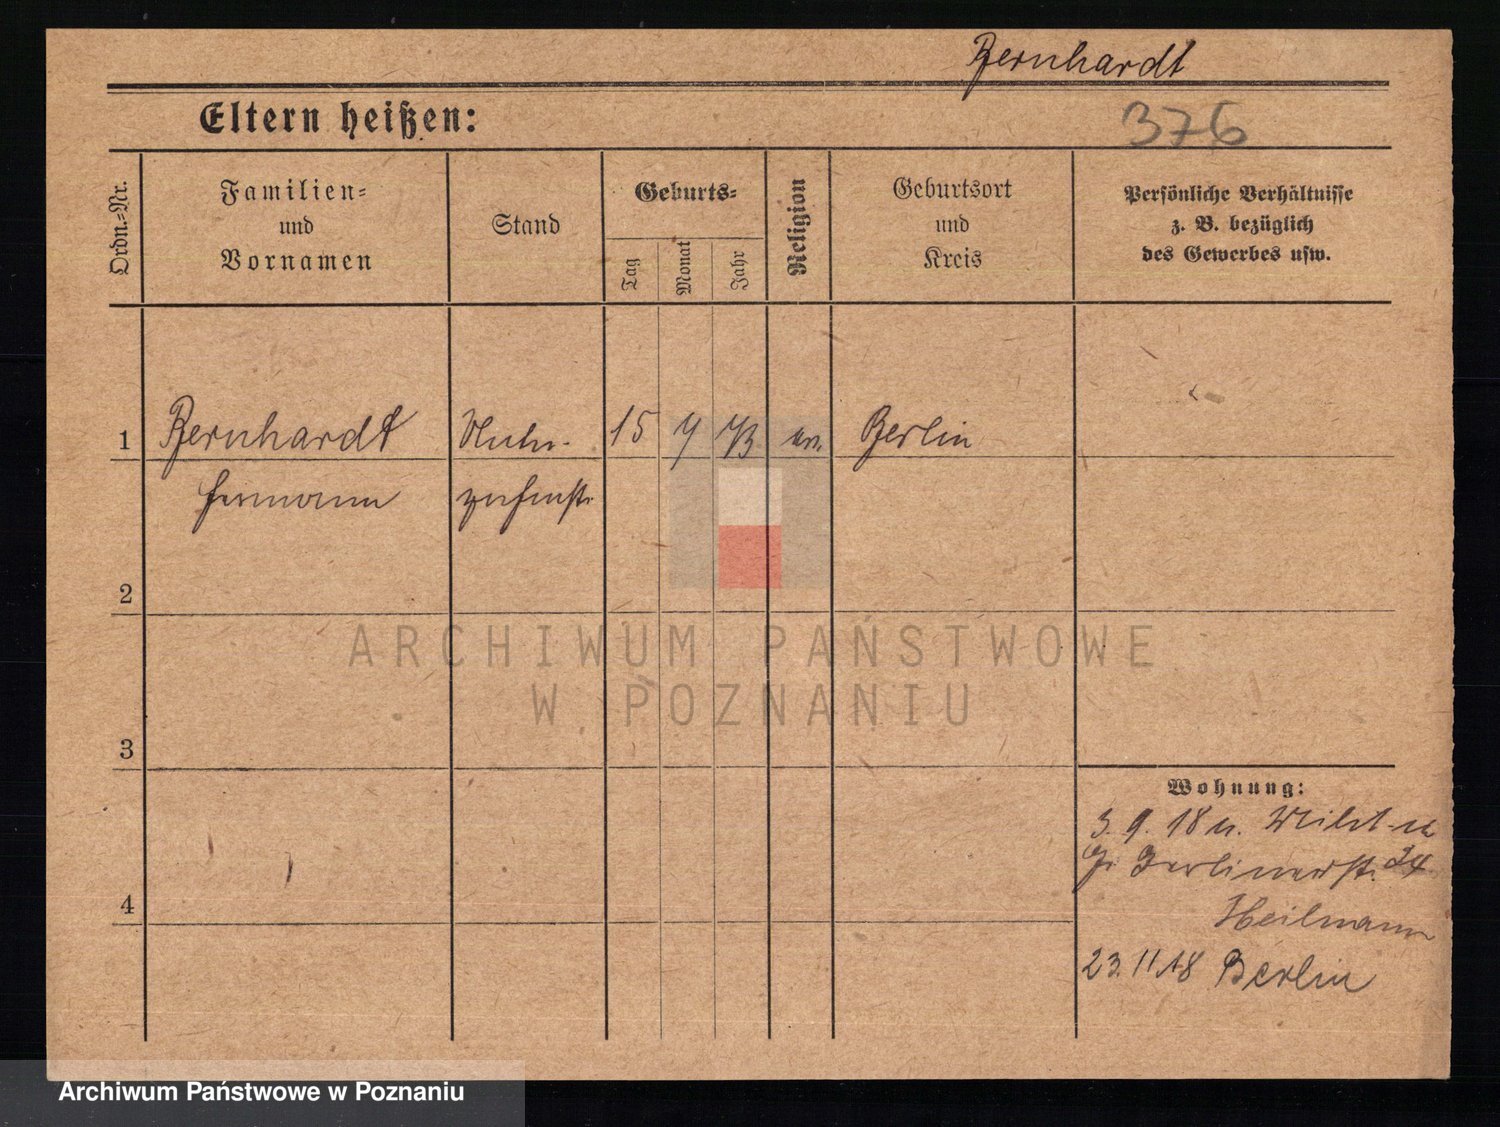 Bernhardt
Eltern heißen:
376
Ordn.=Nr.
Familien=
und
Vornamen
Stand
Geburts=
Tag
Monat
Jahr
Religion
Geburtsort
und
Kreis
Persönliche Verhältnisse
z. B. bezüglich
des Gewerbes usw.
1 Bernhardt 15 Berlin
Hermann
2
ARCHIWUM PAŃSTWOWE
W POZNANIU
3
Wohnung:
3. 9. 18 n.
Gr. Berlinerst. 34
4
Heilmann
23. 11. 18 Berlin
Archiwum Państwowe w Poznaniu